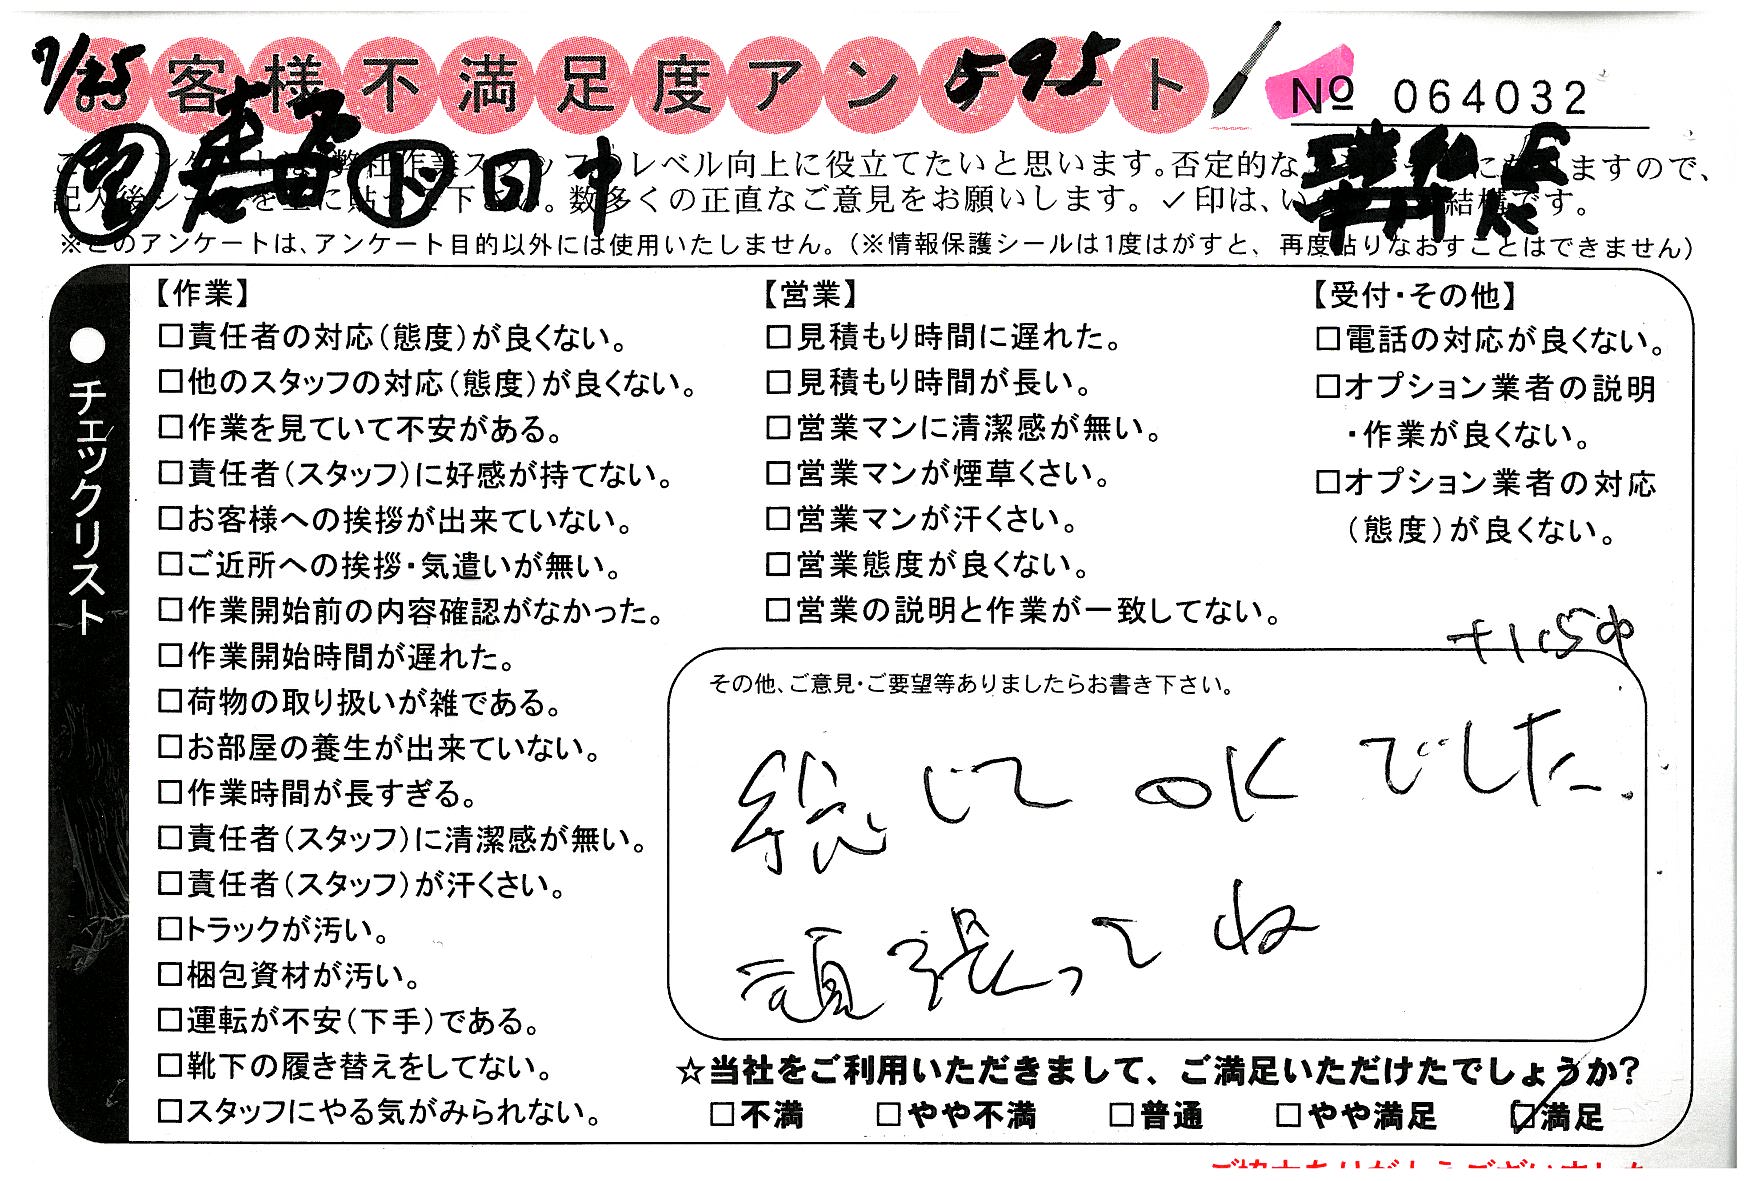 7/25 お客様不満足度アンケート 595
No 064032
このアンケートは、弊社作業スタッフのレベル向上に役立てたいと思います。否定的な
下 田中
記入後シールを上に貼って下さい。数多くの正直なご意見をお願いします。✓印は、い 結構です。
※このアンケートは、アンケート目的以外には使用いたしません。(※情報保護シールは1度はがすと、再度貼りなおすことはできません)
●チェックリスト
【作業】
□責任者の対応(態度)が良くない。
□他のスタッフの対応(態度)が良くない。
□作業を見ていて不安がある。
□責任者(スタッフ)に好感が持てない。
□お客様への挨拶が出来ていない。
□ご近所への挨拶・気遣いが無い。
□作業開始前の内容確認がなかった。
□作業開始時間が遅れた。
□荷物の取り扱いが雑である。
□お部屋の養生が出来ていない。
□作業時間が長すぎる。
□責任者(スタッフ)に清潔感が無い。
□責任者(スタッフ)が汗くさい。
□トラックが汚い。
□梱包資材が汚い。
□運転が不安(下手)である。
□靴下の履き替えをしてない。
□スタッフにやる気がみられない。
【営業】
□見積もり時間に遅れた。
□見積もり時間が長い。
□営業マンに清潔感が無い。
□営業マンが煙草くさい。
□営業マンが汗くさい。
□営業態度が良くない。
□営業の説明と作業が一致してない。
【受付・その他】
□電話の対応が良くない。
□オプション業者の説明
・作業が良くない。
□オプション業者の対応
(態度)が良くない。
その他、ご意見・ご要望等ありましたらお書き下さい。
総じてOKでした.
頑張ってね
☆当社をご利用いただきまして、ご満足いただけたでしょうか?
□不満 □やや不満 □普通 □やや満足 ☑満足
ご協力ありがとうございました